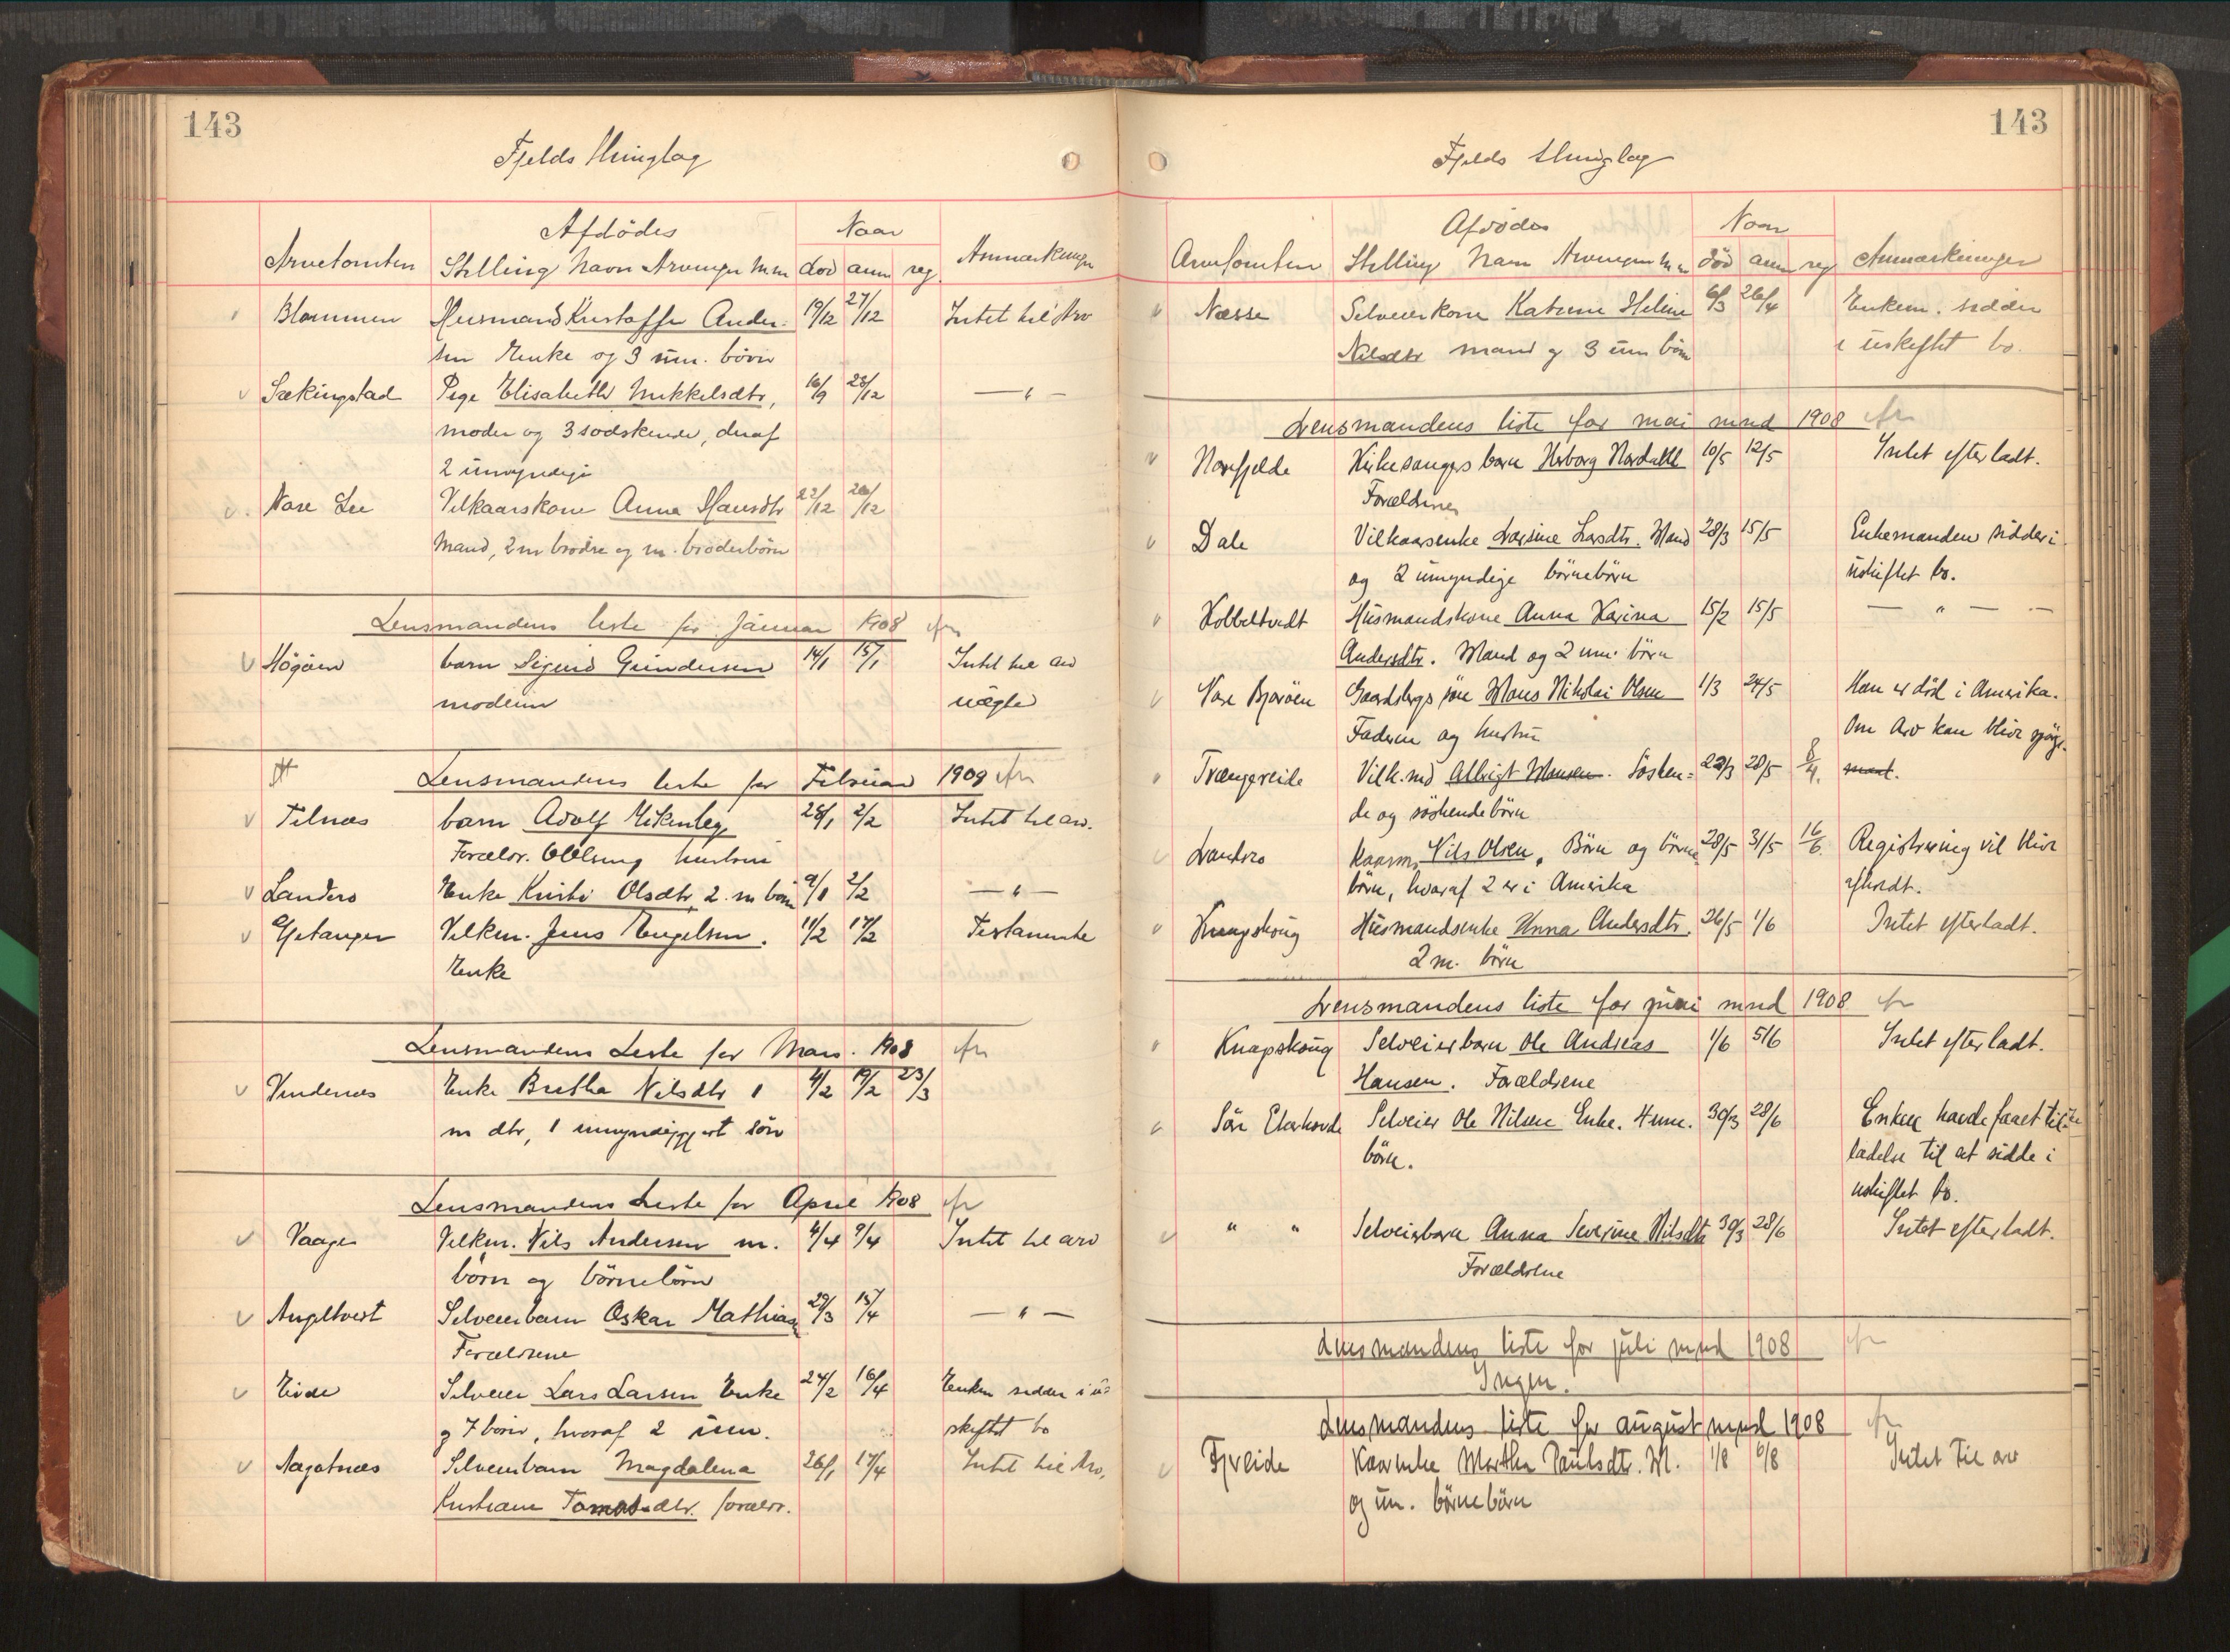 143
Fjelds Thinglag
Afdödes Naar
Arvetomten Stilling Navn Arvinger m.m död anm reg. Anmærkninger
Blommen Husmand Kristoffer Ander- 19/12 27/12 Intet til Arv
sen Enke og 3 um. börn
Sækingstad Pige Elisabeth Mikkelsdtr, 16/9 28/12 — " —
moder og 3 södskende, deraf
2 umyndige
Nore Lie Vilkaarskone Anna Hansdtr 22/12 26/12
Mand, 2 m brödre og m. broderbörn
Lensmandens liste for Januar 1908
Högöen barn Sigurd Gundersen 14/1 15/1 Intet til arv
moderen uægte
Lensmandens liste for Februar 1908
Telnæs barn Adolf 28/1 2/2 Intet til arv.
Forældr.
Landero Enke Kristi Olsdtr 2 m börn 9/1 2/2 — " —
Gjetanger Vilkm. Jens Engelsen. 11/2 17/2 Testamente
Enke
Lensmandens Liste for Mars. 1908
Vindenæs Enke Britha Nilsdtr 1 4/2 19/2 23/3
m dtr, 1 umyndiggjort sön
Lensmandens Liste for April 1908
Vaage Vilkm. Nils Andersen m. 4/4 9/4 Intet til arv
börn og börnebörn
Angeltveit Selveierbarn Oskar Mathiasen 29/3 15/4 — " —
Forældrene
Eide Selveier Lars Larsen Enke 24/2 16/4 Enken sidder i u-
og 7 börn, hvoraf 2 um. skiftet bo
Aagotnæs Selveierbarn Magdalena 26/1 17/4 Intet til Arv,
Kristiane Tomasdtr. forældr.
143
Fjelds Thinglag
Afdödes Naar
Arvetomten Stilling Navn Arvinger m m död anm reg Anmærkninger
Næsse Selveierkone Katrine Helene 6/3 26/4 Enkem. sidder
Nilsdtr mand og 3 um börn i uskiftet bo.
Lensmandens liste for mai mnd 1908
Norefjelde Kirkesangers barn Herborg Nordahl 10/5 12/5 Intet efterladt.
Forældrene
Dale Vilkaarsenke Larsine Larsdtr. Mand 28/3 15/5 Enkemanden sidder i
og 2 umyndige börnebörn uskiftet bo.
Kobbeltvedt Husmandskone Anna Karina 15/2 15/5 — " — —
Andersdtr. Mand og 2 um. börn
Nore Bjoröen Gaardbrugs sön Mons Nikolai Olsen 1/3 24/5 Han er död i Amerika.
Faderen og hustru Om Arv kan blive spörgs-
Trængereide Vilk.md Albrigt Monsen. Sösken- 22/3 28/5 8/4. maal.
de og söskendebörn
Landro Kaarm. Nils Olsen. Börn og börne- 28/5 31/5 16/6. Registrering vil blive
börn, hvoraf 2 er i Amerika afholdt.
Knapskoug Husmandsenke Anna Andersdtr. 26/5 1/6 Intet efterladt.
2 m. börn
Lensmandens liste for juni mnd 1908
Knapskoug Selveierbarn Ole Andreas 1/6 5/6 Intet efterladt.
Hansen. Forældrene
Sör Ekerhovde Selveier Ole Nilsen Enke. 4 um. 30/3 28/6 Enken havde faaet til-
börn. ladelse til at sidde i
uskiftet bo.
" " Selveierbarn Anna Severine Nilsdtr 30/3 28/6 Intet efterladt.
Forældrene
Lensmandens liste for juli mnd 1908
Ingen.
Lensmandens liste for august mnd 1908
Fjreide Kaarenke Martha Paulsdtr. M. 1/8 6/8 Intet til arv
og um. börnebörn